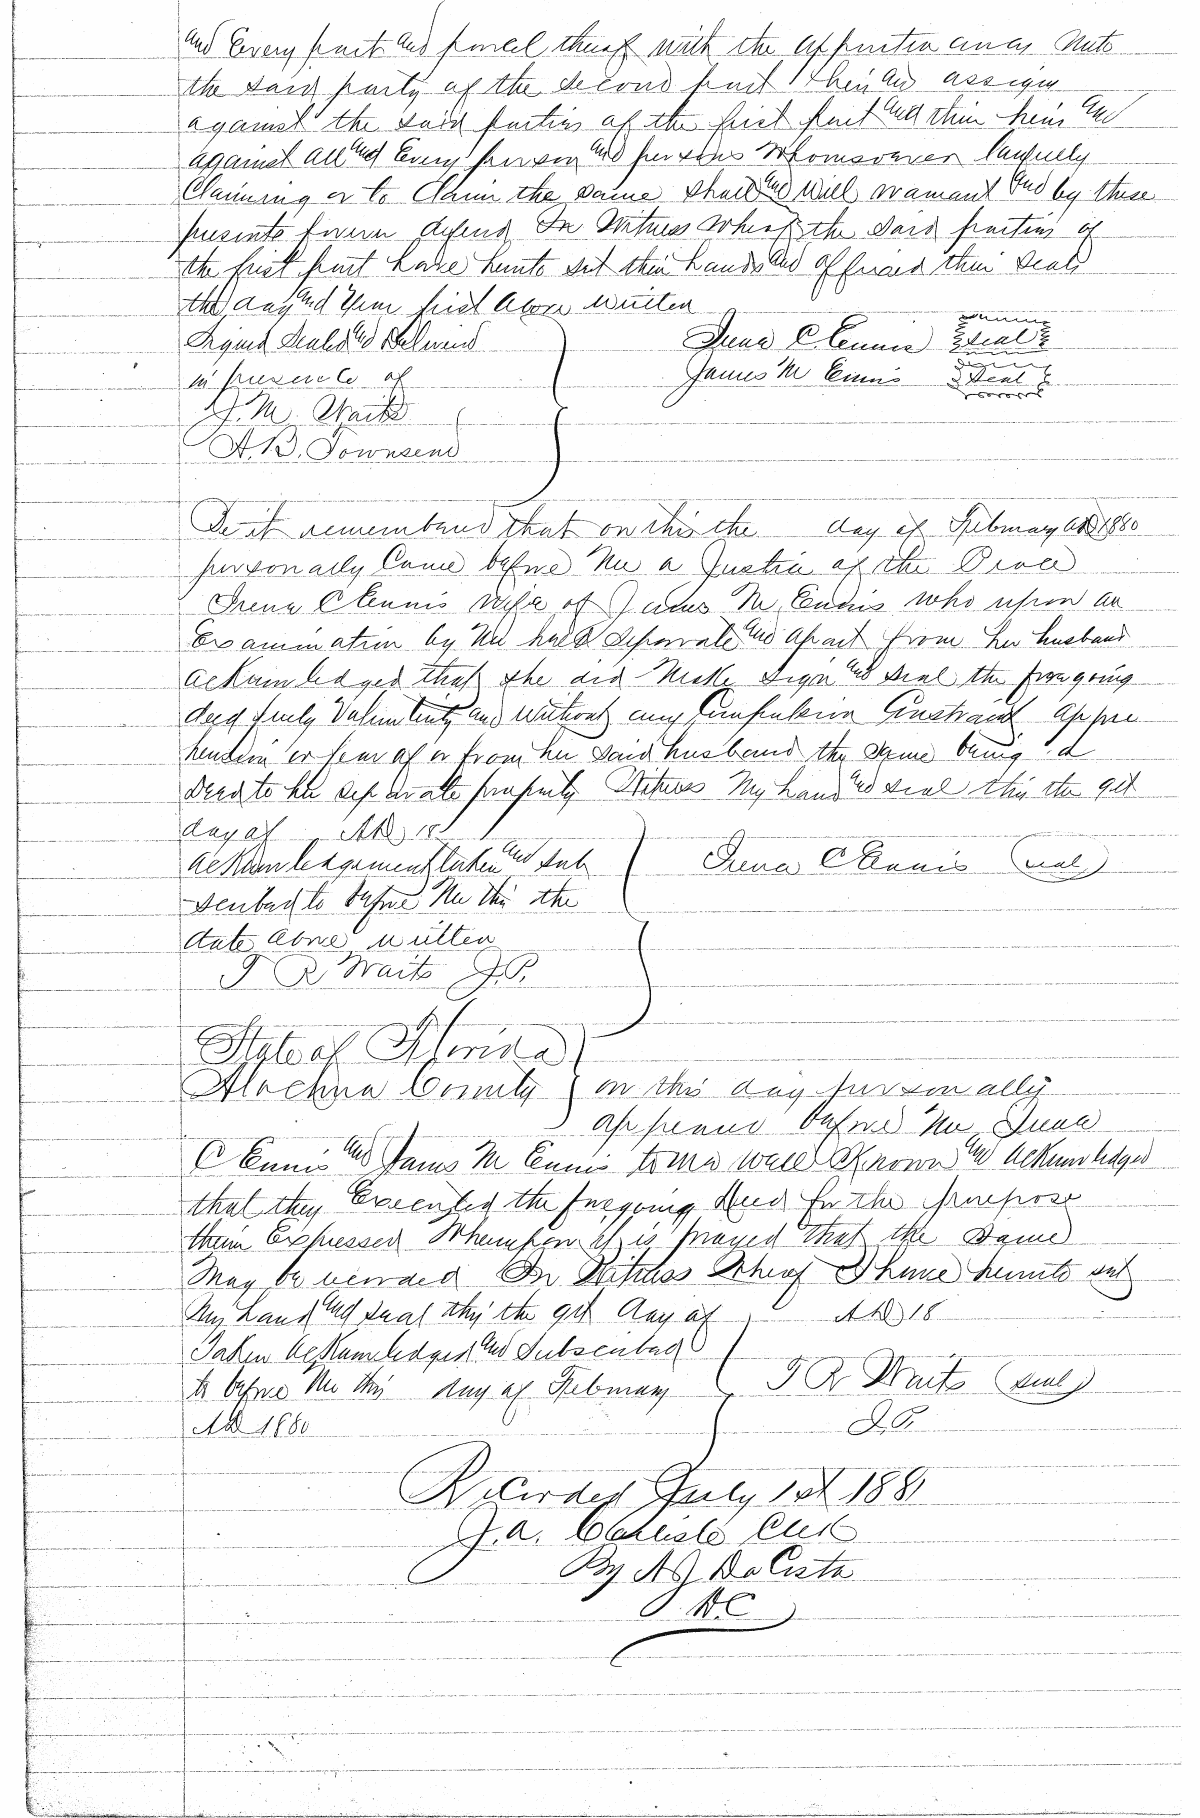 and Every part and parcel thereof with the appurtenances unto
the said party of the second part their and assigns
against the said parties of the first part and their heirs and
against all and Every person and persons whomsoever lawfully
Claiming or to Claim the same shall and will warrant and by these
presents forever defend In Witness whereof the said parties of
the first part have hereunto set their hands and affixed their seals
the day and year first above written
Signed Sealed and Delivered
in presence of
Irena C Ennis Seal
James M Ennis Seal
J. M. Waits
A. B. Townsend
Be it remembered that on this the day of February AD 1880
personally Came before me a Justice of the Peace
Irena C Ennis wife of James M Ennis who upon an
Examination by me held separate and apart from her husband
acknowledged that she did make sign and seal the foregoing
deed freely Voluntarily and without any Compulsion Constraint appre
hension or fear of or from her said husband the same being a
Deed to her separate property Witness my hand and seal this the 9th
day of AD 18
acknowledgement taken and sub
scribed to before me this the
date above written
Irena C Ennis (seal)
T R Waits J.P.
State of Florida
Alachua County } on this day personally
appeared before me Irena
C Ennis and James M Ennis to me well Known and acknowledged
that they Executed the foregoing deed for the purpose
therein Expressed Whereupon it is prayed that the same
may be recorded In Witness Whereof I have hereunto set
my hand and seal this the 9th day of AD 18
Taken acknowledged and subscribed
to before me this day of February
AD 1880
T R Waits (seal)
J.P.
Recorded July 1st 1881
J. A. Carlisle Clerk
By A J DaCosta
D.C